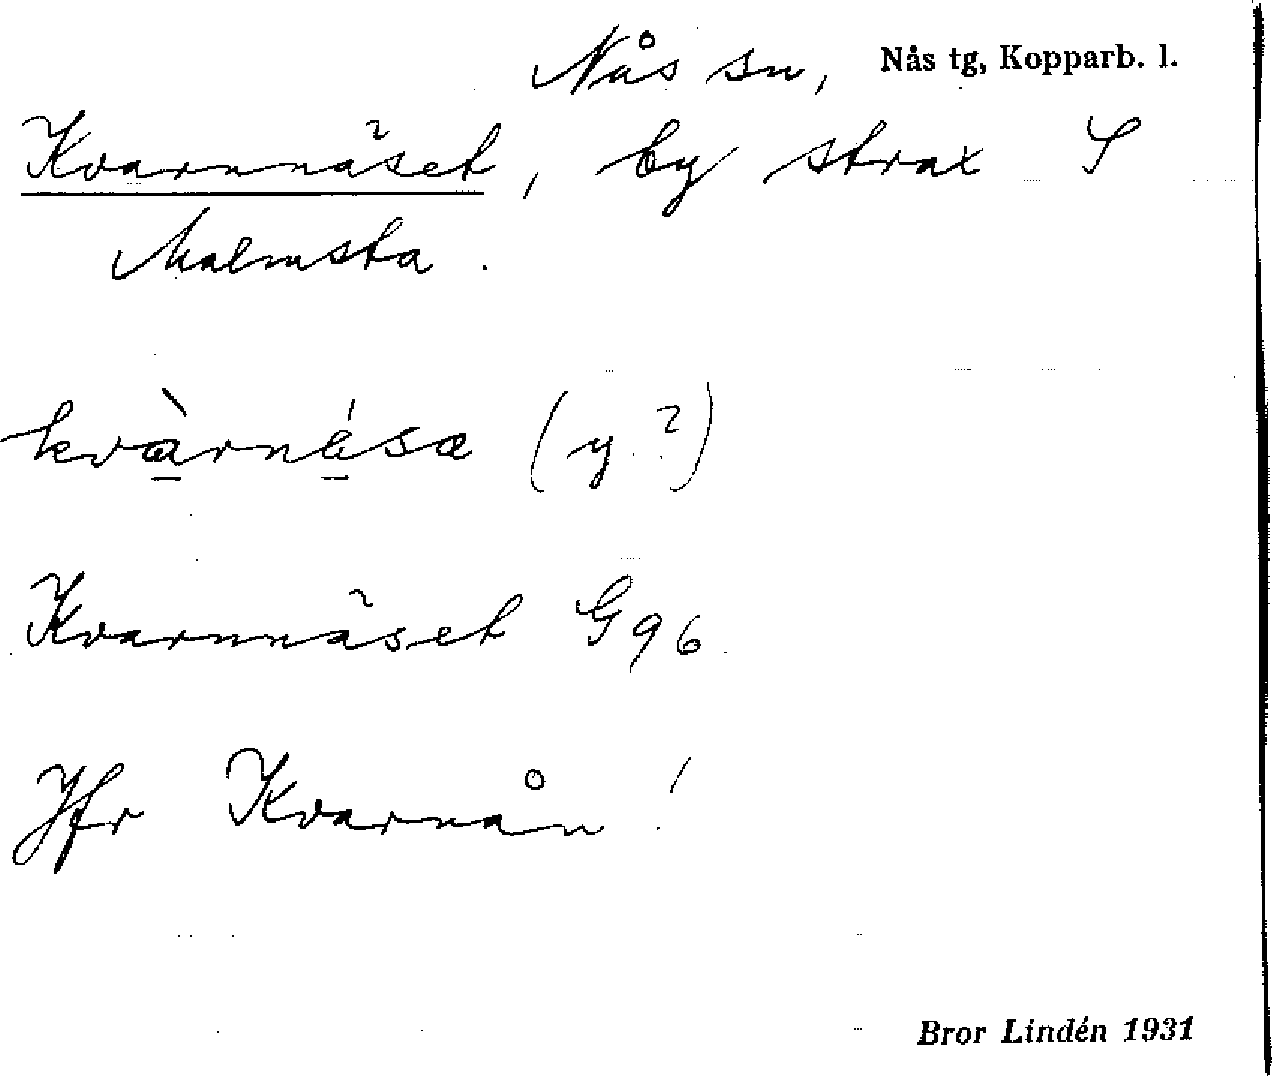 Nås sn, Nås tg, Kopparb. l.
Kvarnnäset, by strax S
Malmsta.
kvàrnésa (y?)
Kvarnnäset G96.
Jfr Kvarnån!
Bror Lindén 1931